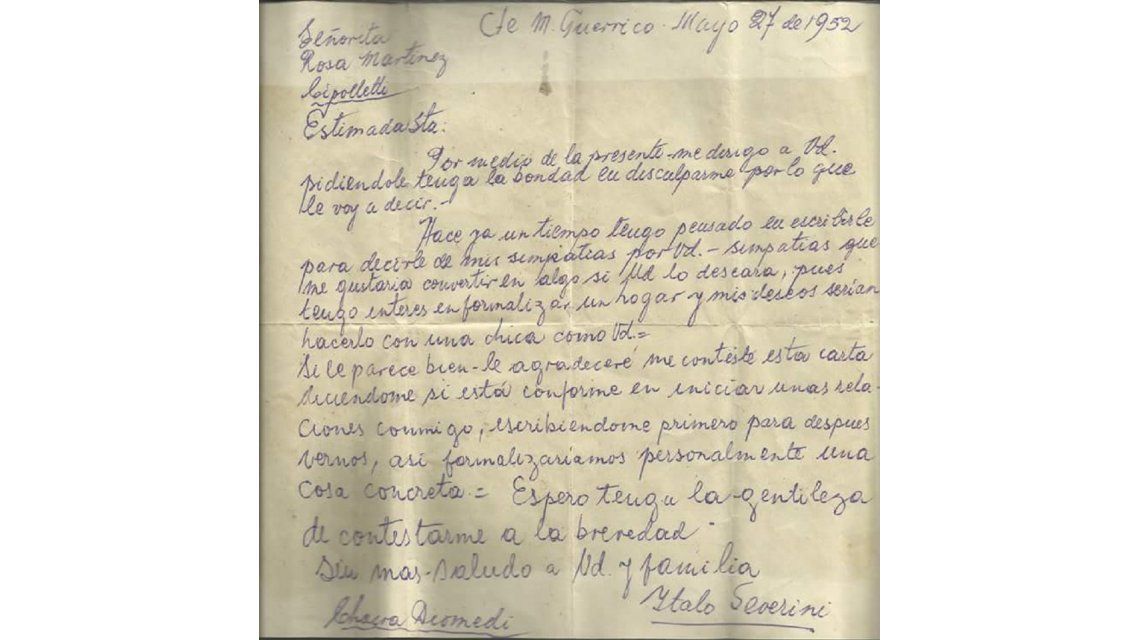 Cte M. Guerrico - Mayo 27 de 1952
Señorita
Rosa Martinez
Cipolletti
Estimada Sta:
Por medio de la presente me dirigo a Vd.
pidiendole tenga la bondad en disculparme por lo que
le voy a decir.-
Hace ya un tiempo tengo pensado en escribirle
para decirle de mis simpatias por Vd. - simpatias que
me gustaria convertir en algo si Vd lo deseara, pues
tengo interes en formalizar un hogar y mis deseos serian
hacerlo con una chica como Vd.=
Si le parece bien - le agradeceré me conteste esta carta
diciendome si está conforme en iniciar unas rela-
ciones conmigo, escribiendome primero para despues
vernos, asi formalizaríamos personalmente una
cosa concreta = Espero tenga la gentileza
de contestarme a la brevedad
Sin mas - saludo a Vd. y familia
Italo Severini
Chacra Diomedi